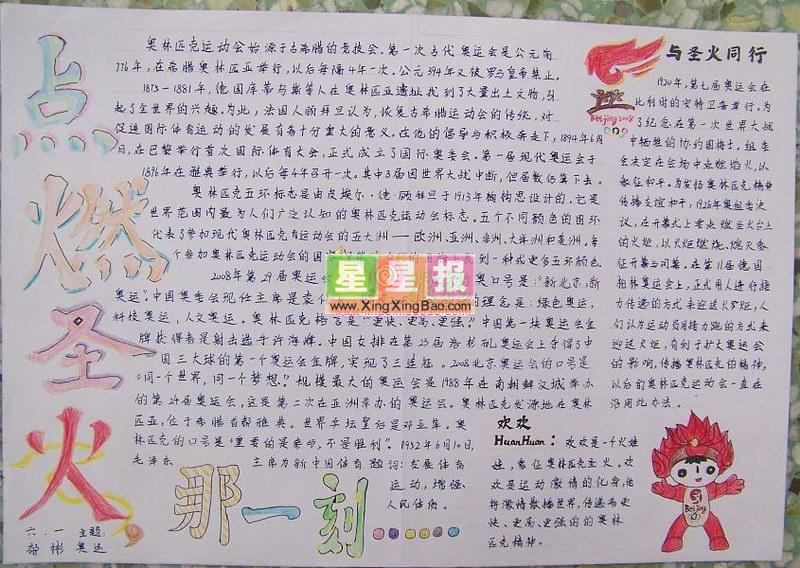 点燃圣火,
那一刻
六.一 主题:
郁彬 奥运
奥林匹克运动会始源于古希腊的竞技会。第一次古代奥运会是公元前
776年,在希腊奥林匹亚举行,以后每隔4年一次。公元394年又被罗马皇帝禁止。
1875—1881年,德国库蒂与斯等人在奥林匹亚遗址找到了大量出土文物,引
起了全世界的兴趣。为此,法国人顾拜旦认为,恢复古希腊运动会的传统,对
促进国际体育运动的发展有着十分重大的意义。在他的倡导与积极奔走下,1894年6月
日,在巴黎举行首次国际体育大会,正式成立了国际奥委会。第一届现代奥运会于
1896年在雅典举行,以后每4年召开一次。其中3届因世界大战中断,但届数仍算下去。
奥林匹克五环标志是由皮埃尔·德·顾拜旦于1913年构想设计的。它是
世界范围内最为人们广泛认知的奥林匹克运动会标志。五个不同颜色的圆环
代表了参加现代奥林匹克运动会的五大洲——欧洲、亚洲、非洲、大洋洲和美洲,每
个参加奥林匹克运动会的国 到一种或更多五环颜色
2008年第29届奥运 奥口号是:“新北京,新
奥运”。中国奥委会现任主席是袁 的理念是:绿色奥运,
科技奥运,人文奥运。奥林匹克格言是“更快、更高、更强。”中国第一块奥运会金
牌获得者是射击选手许海峰。中国女排在第23届洛杉矶奥运会上夺得了中
国三大球的第一个奥运会金牌,实现了三连冠。2008北京奥运会的口号是
“同一个世界,同一个梦想。”规模最大的奥运会是1988年在南朝鲜汉城举办
的第24届奥运会,这是第二次在亚洲举办的奥运会。奥林匹克发源地在奥林
匹亚,位于希腊首都雅典。世界乒坛皇后是邓亚萍。奥
林匹克的口号是“重要的是参与,不是胜利”。1952年6月10日,
毛泽东 主席为新中国体育题词:发展体育
运动,增强
人民体质。
星星报
www.XingXingBao.com
Beijing 2008
与圣火同行
1920年,第七届奥运会在
比利时的安特卫普举行。为
了纪念在第一次世界大战
中牺牲的协约国将士,组委
会决定在会场中点燃焰火,以
象征和平。为宏扬奥林匹克精神
传播友谊和平,1928年奥组委决
议,在开幕式上要点燃圣火台上
的火炬,以火炬燃烧、熄灭象
征开幕与闭幕。在第11届德国
柏林奥运会上,正式用人进行接
力传递的方式来迎送火炬,人
们认为运动员用接力跑的方式来
迎送火炬,有利于扩大奥运会
的影响,传播奥林匹克的精神,
以后的奥林匹克运动会一直在
沿用此办法。
欢欢
HuanHuan: 欢欢是一个火娃
娃,象征奥林匹克圣火。欢
欢是运动激情的化身,他
将激情散播世界,传递着更
快、更高、更强的的奥林
匹克精神。
Beijing